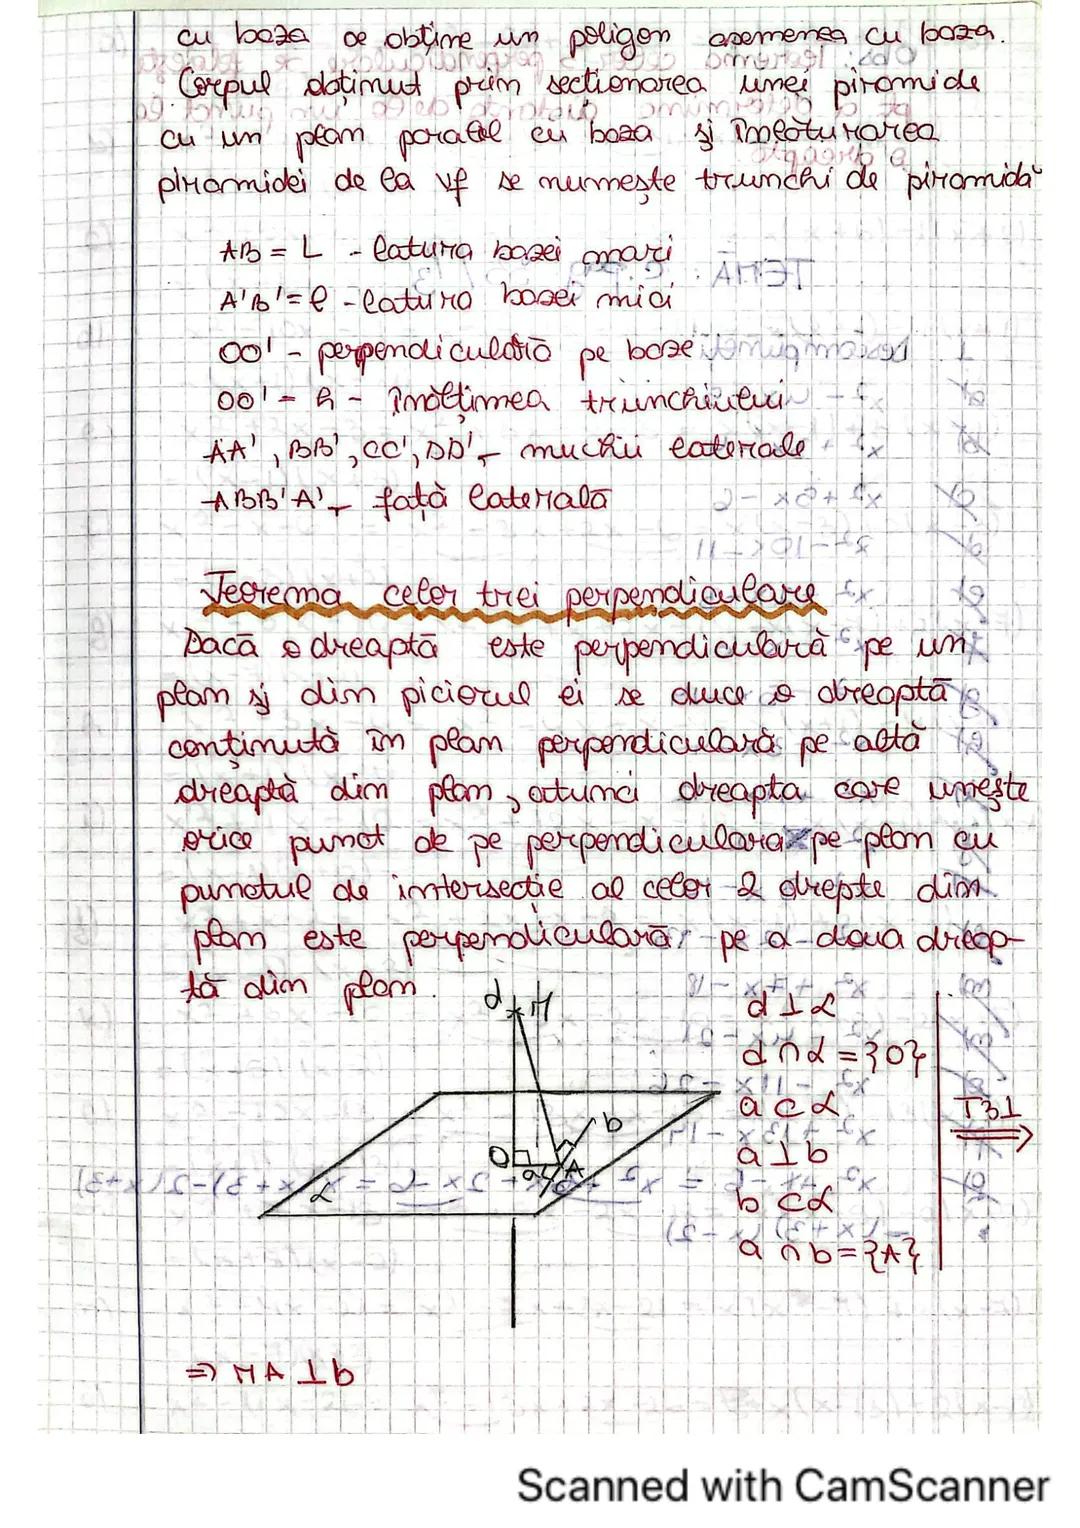 cu baza se obține un poligon asemenea cu baza.
Corpul obținut prin secționarea unei piramide
cu un plan paralel cu baza și înlăturarea
piramidei de la vf se numește trunchi de piramidă
AB = L - latura bazei mari
A'B' = l - latura bazei mici
OO' - perpendiculară pe baze
OO' = h - înălțimea trunchiului
AA', BB', CC', DD' - muchii laterale
ABB'A' - față laterală
Teorema celor trei perpendiculare
Dacă o dreaptă este perpendiculară pe un
plan și din piciorul ei se duce o dreaptă
conținută în plan perpendiculară pe altă
dreaptă din plan, atunci dreapta care unește
orice punct de pe perpendiculara pe plan cu
punctul de intersecție al celor 2 drepte din
plan este perpendiculară pe a doua dreap-
tă din plan.
d M
d ⊥ α
d ∩ α = {O}
a ⊂ α
T3⊥
b
a ⊥ b
O a A
α
b ⊂ α
a ∩ b = {A}
⇒ MA ⊥ b
Scanned with CamScanner